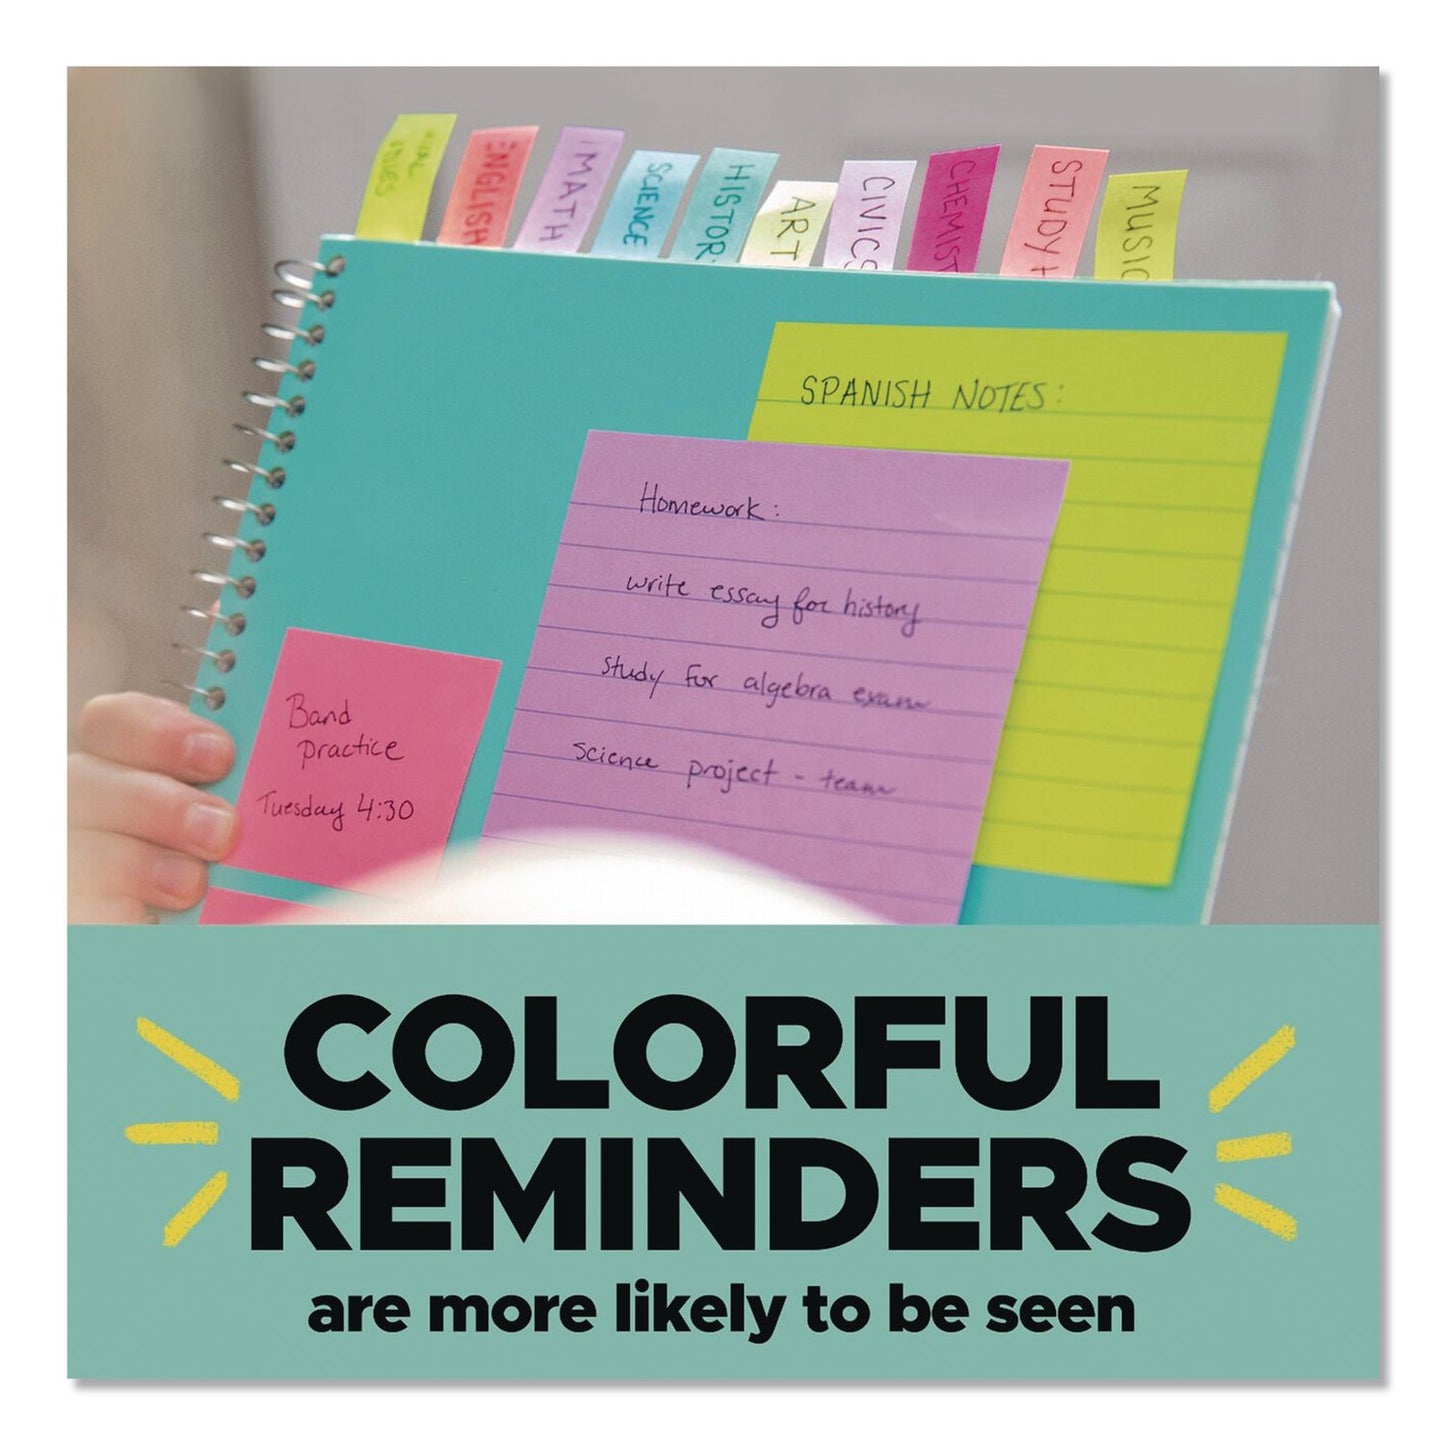 ENGLISH
MATH
SCIENCE
HISTOR
ART
CIVICS
CHEMIST
STUDY
MUSIC
SPANISH NOTES:
Homework:
write essay for history
study for algebra exam
science project - team
Band
practice
Tuesday 4:30
COLORFUL
REMINDERS
are more likely to be seen